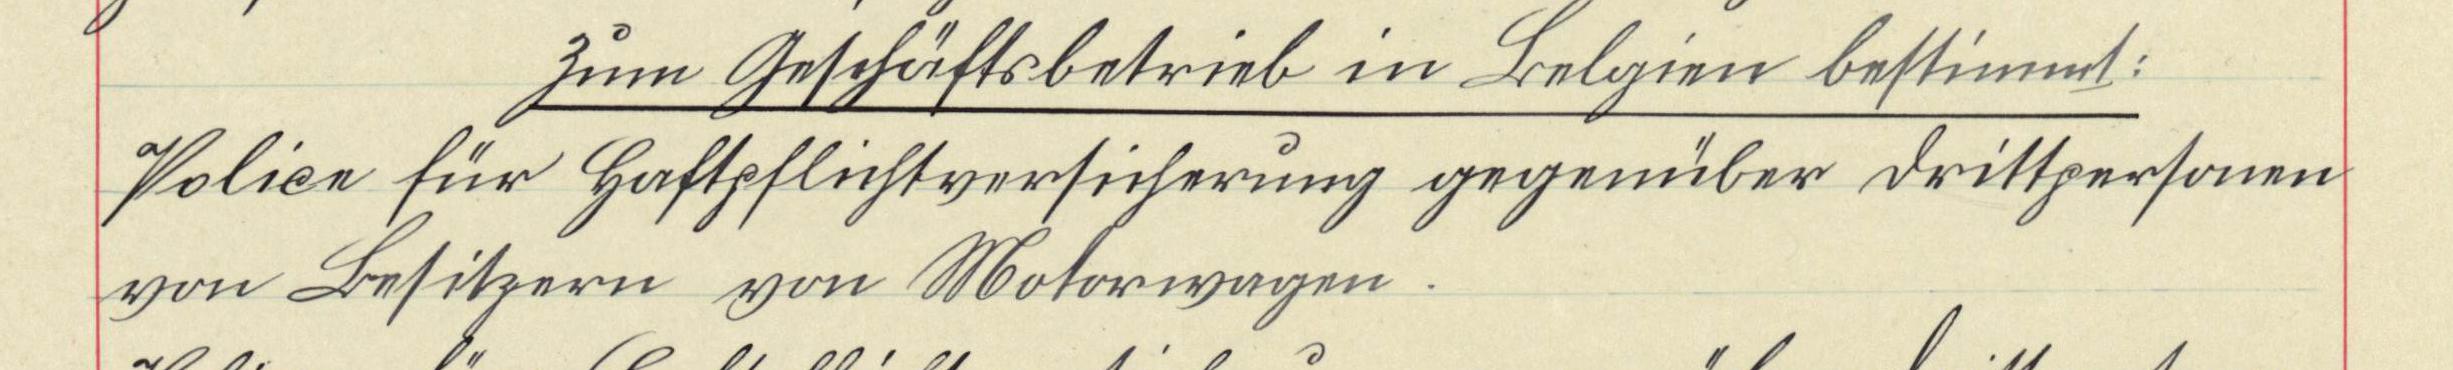 Zum Geschäftsbetrieb in Belgien bestimmt:
Police für Haftpflichtversicherung gegenüber Drittpersonen
von Besitzern von Motorwagen.